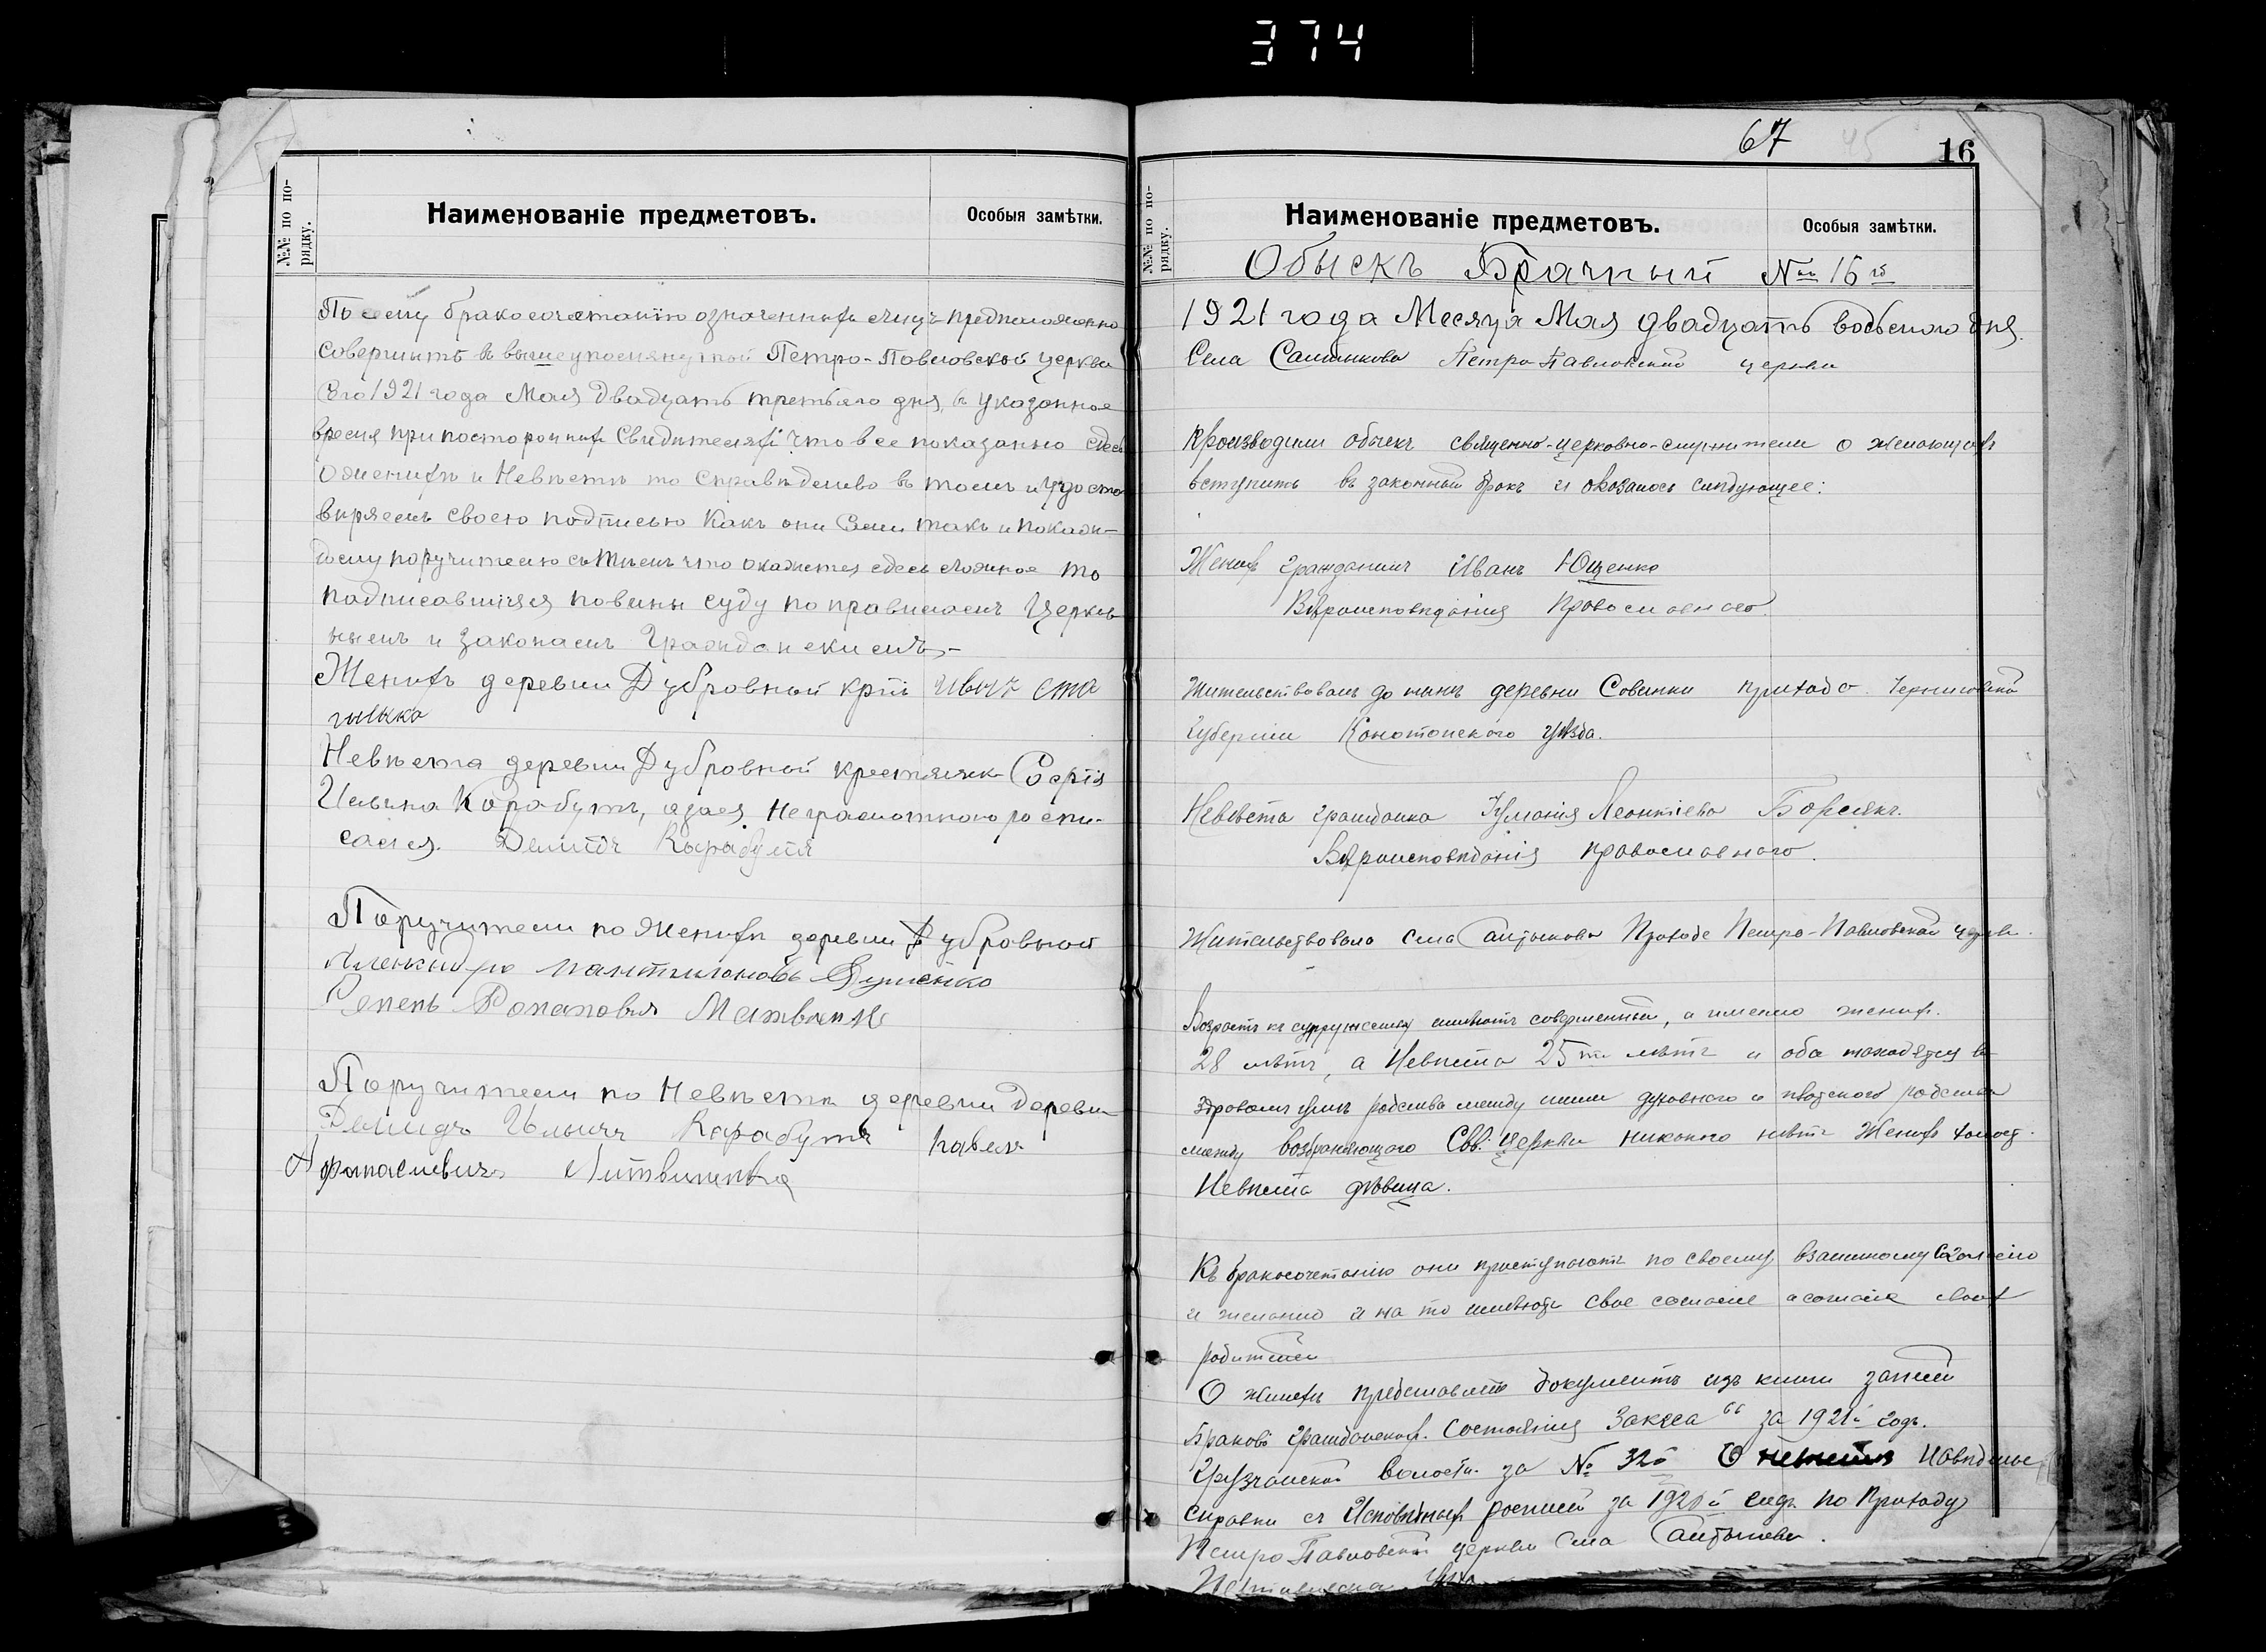 374
№№ по по-
рядку.
Наименованіе предметовъ.
Особыя замѣтки.
По сему бракосочетанію означенныхъ лицъ предположенно
совершить въ вышеупомянутой Петро-Павловской церкви
Сего 1921 года Мая двадцать третьяго дня, въ указанное
время при постороннихъ свидителяхъ. Что все показанно сдесь
О женихѣ и Невѣстѣ то справѣделиво въ томъ и удосто
вѣряемъ своею подписью Какъ они Сами такъ и покаж-
дому поручителю съ тѣмъ что окажется сдесь ложное то
подписавшіяся повины суду по правиламъ Церков
нымъ и законамъ Гражданскимъ.-
Женихъ деревни Дубровный
Невѣста деревни Дубровной крестьянка Софія
Ильина Карабутъ, неграмотною роспи-
сался. Демидъ Карабутъ
Поручители по Женихѣ деревни Дубровной
Матвѣенко
Поручители по Невѣстѣ деревни
Демидъ Ильичъ Карабутъ Павелъ
Афанасиевичъ Литвиненко
67
45
16
№№ по по-
рядку.
Наименованіе предметовъ.
Особыя замѣтки.
Обыскъ Брачный № 16й
1921 года Месяца Мая двадцать восьмого дня.
Села Салтыкова Петро-Павловской церкви
Производили обыскъ священно-церковно-служители о желающихъ
вступить въ законный бракъ и оказалось слѣдующее:
Женихъ гражданинъ Иванъ Ющенко
Вѣроисповѣданія Православного.
Жительствовалъ до нынѣ деревни Савинки прихода Черниговской
Губерніи Конотопскаго уѣзда.
Невѣста гражданка Іуліанія Леонтіева
Вѣроисповѣданія православного.
Жительствовала села Салтыкова Приходе Петро-Павловской церкви.
Возрастъ къ супружеству имѣютъ совершенный, а именно женихъ.
28 лѣтъ, а Невѣста 25ти лѣтъ и оба находятся въ
здравомъ умѣ родства между ними духовного и плотского родства
между возбраняющаго Свв. Церкви никакого нѣтъ Женихъ холост.
Невѣста дѣвица.
Къ бракосочетанію они приступаютъ по своему взаимному согласію
и желанию и на то имѣютъ свое согласие и согласие своих
родителей
О женихѣ представлено документъ изъ книги записи
Браковъ гражданских. Состоянія за 1921й годъ.
волости за № 32й О наведено
справки съ Исповѣдных росписей за 1920й годъ по Приходу
Петро Павловской церкви Села Салтыкова.